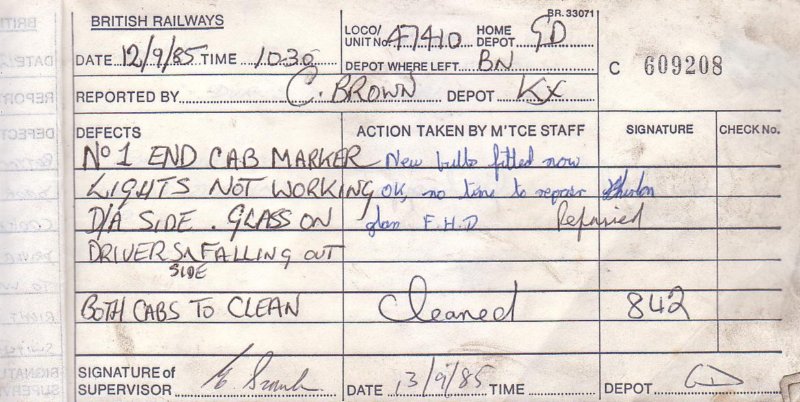 BR. 33071
BRITISH RAILWAYS
LOCO/ UNIT No. 47410 HOME DEPOT GD
DATE 12/9/85 TIME 1030
DEPOT WHERE LEFT BN
C 609208
REPORTED BY C. BROWN DEPOT KX
DEFECTS ACTION TAKEN BY M'TCE STAFF SIGNATURE CHECK No.
No 1 END CAB MARKER New bulbs fitted now
LIGHTS NOT WORKING OK, no time to repair
D/A SIDE. GLASS ON glass F.H.D Repaired
DRIVERS FALLING OUT
SIDE
BOTH CABS TO CLEAN Cleaned 842
SIGNATURE of SUPERVISOR DATE 13/9/85 TIME DEPOT GD